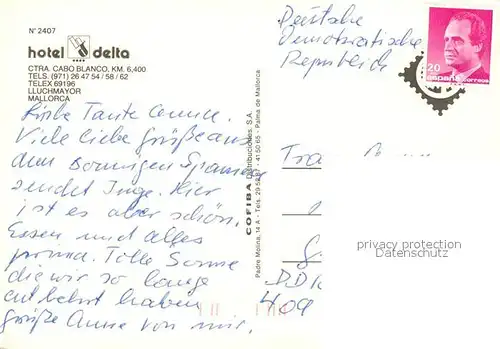 Nº 2407
hotel delta
CTRA. CABO BLANCO, KM. 6,400
TELS. (971) 26 47 54 / 58 / 62
TELEX 69196
LLUCHMAYOR
MALLORCA
Liebe Tante
Viele liebe Grüße aus
dem sonnigen Spanien
sendet Inge. Hier
ist es aber schön.
Essen und alles
prima. Tolle Sonne
die wir so lange
entbehrt haben
grüße Anne von mir.
COFIBA Distribuciones, S.A.
Padre Molina, 14 A - Tels. 29 59 - 41 50 65 - Palma de Mallorca
Deutsche
Demokratische
Republick
20
españa correos
Tra
S
DDR
409
privacy protection
Datenschutz